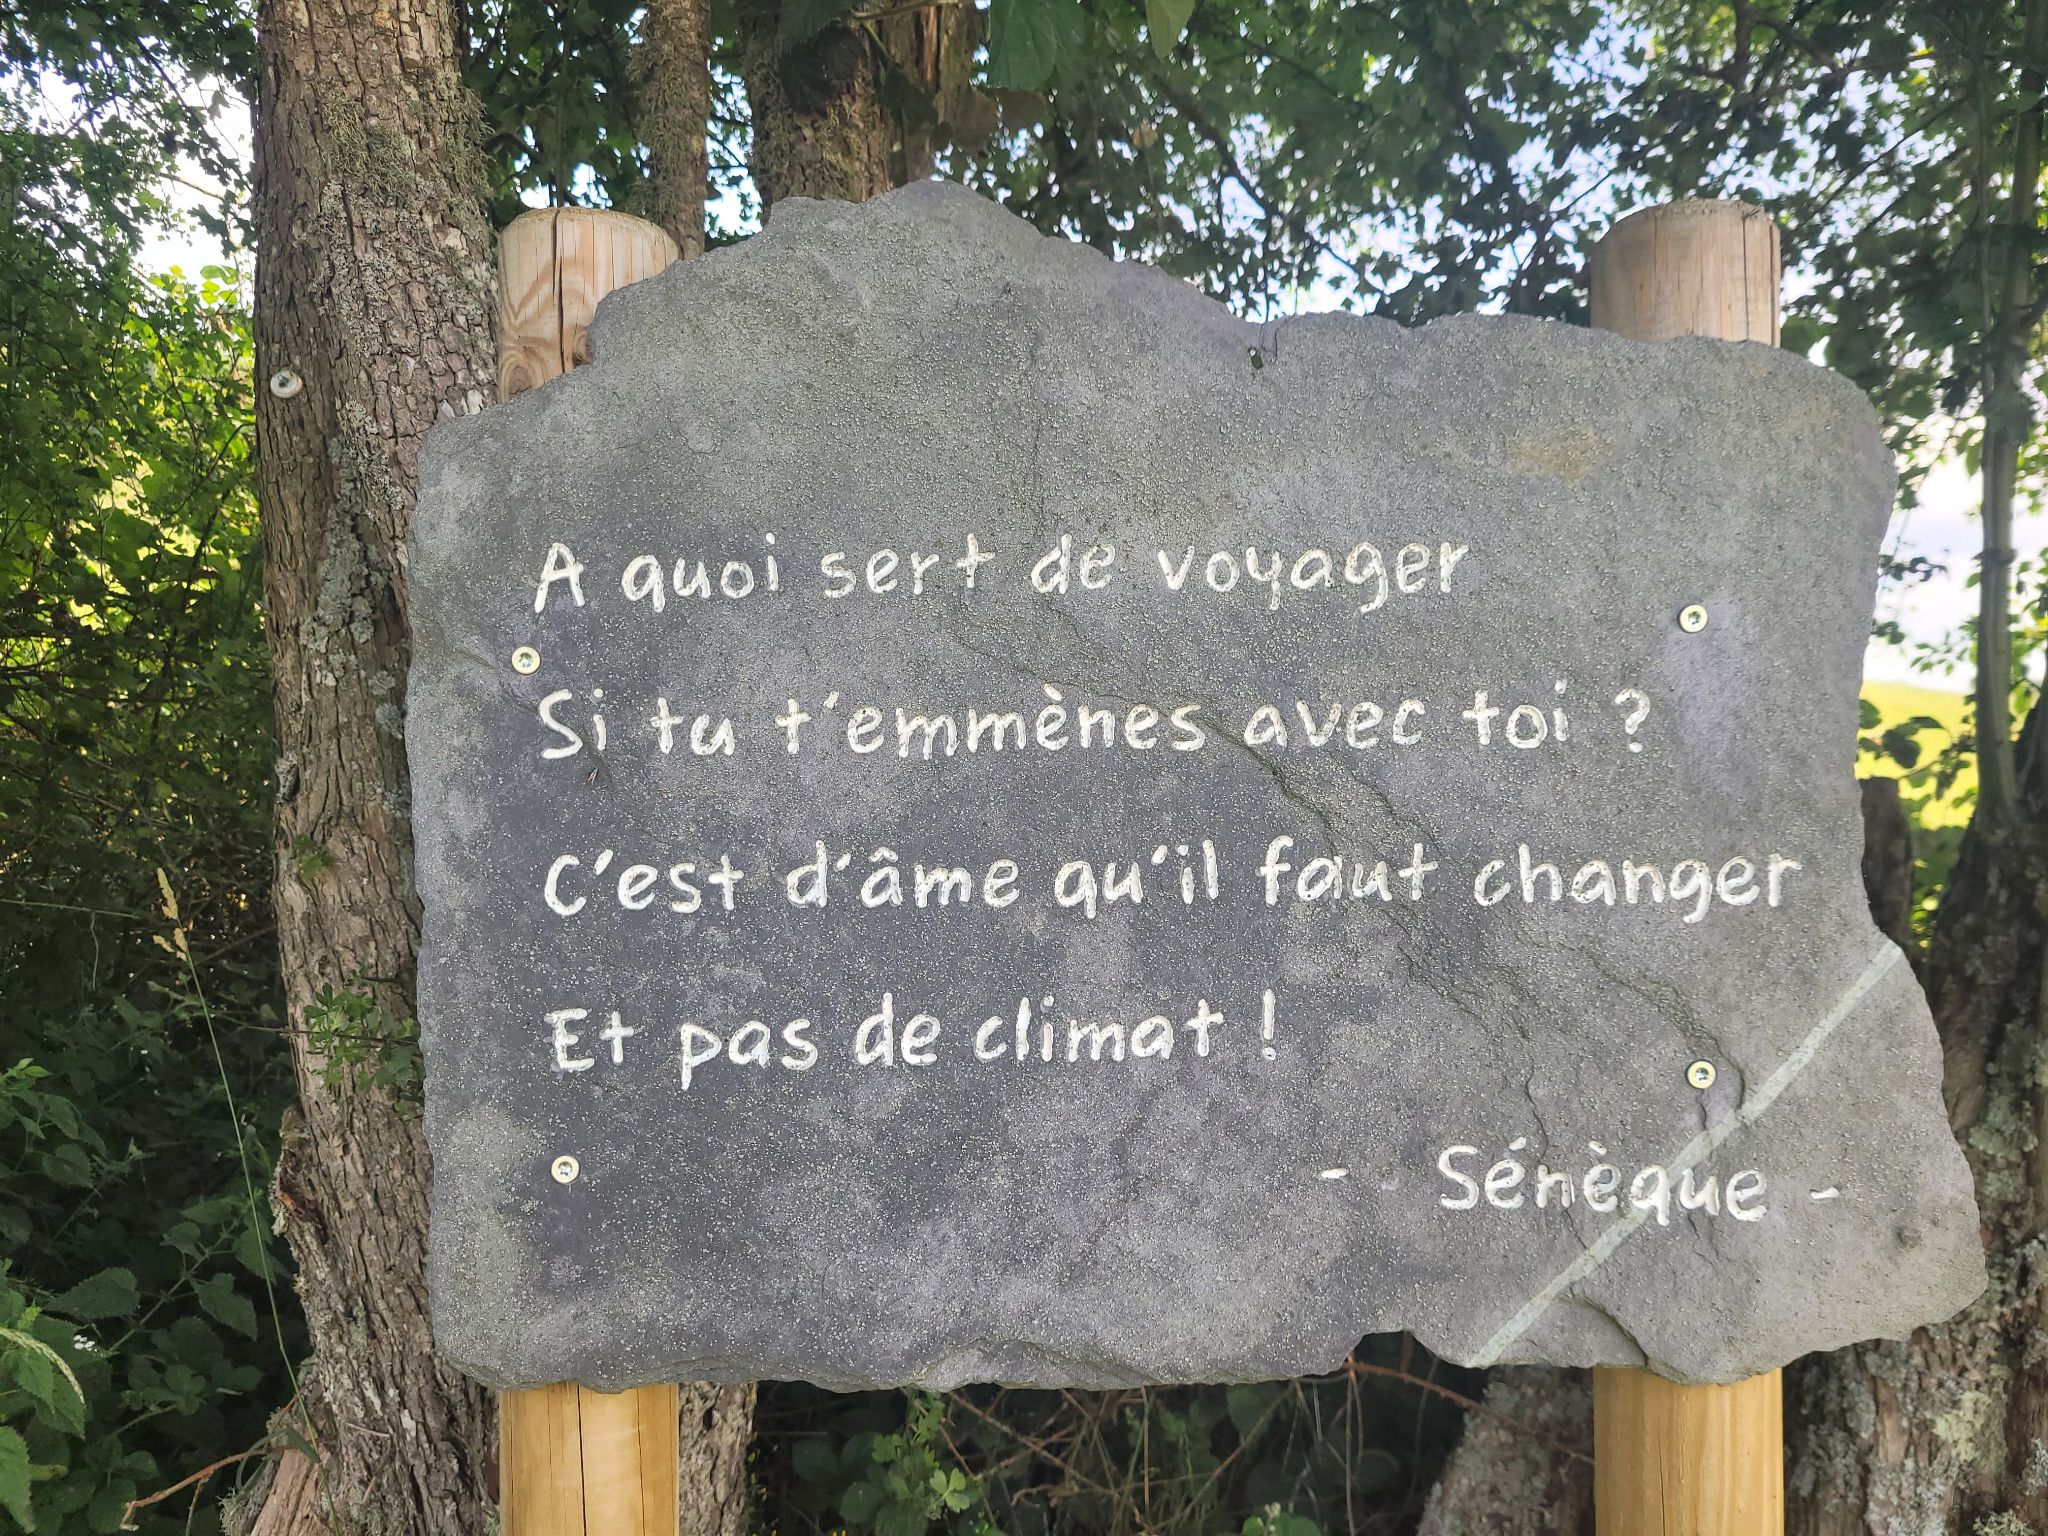 A quoi sert de voyager
Si tu t'emmènes avec toi ?
C'est d'âme qu'il faut changer
Et pas de climat !
- Sénèque -